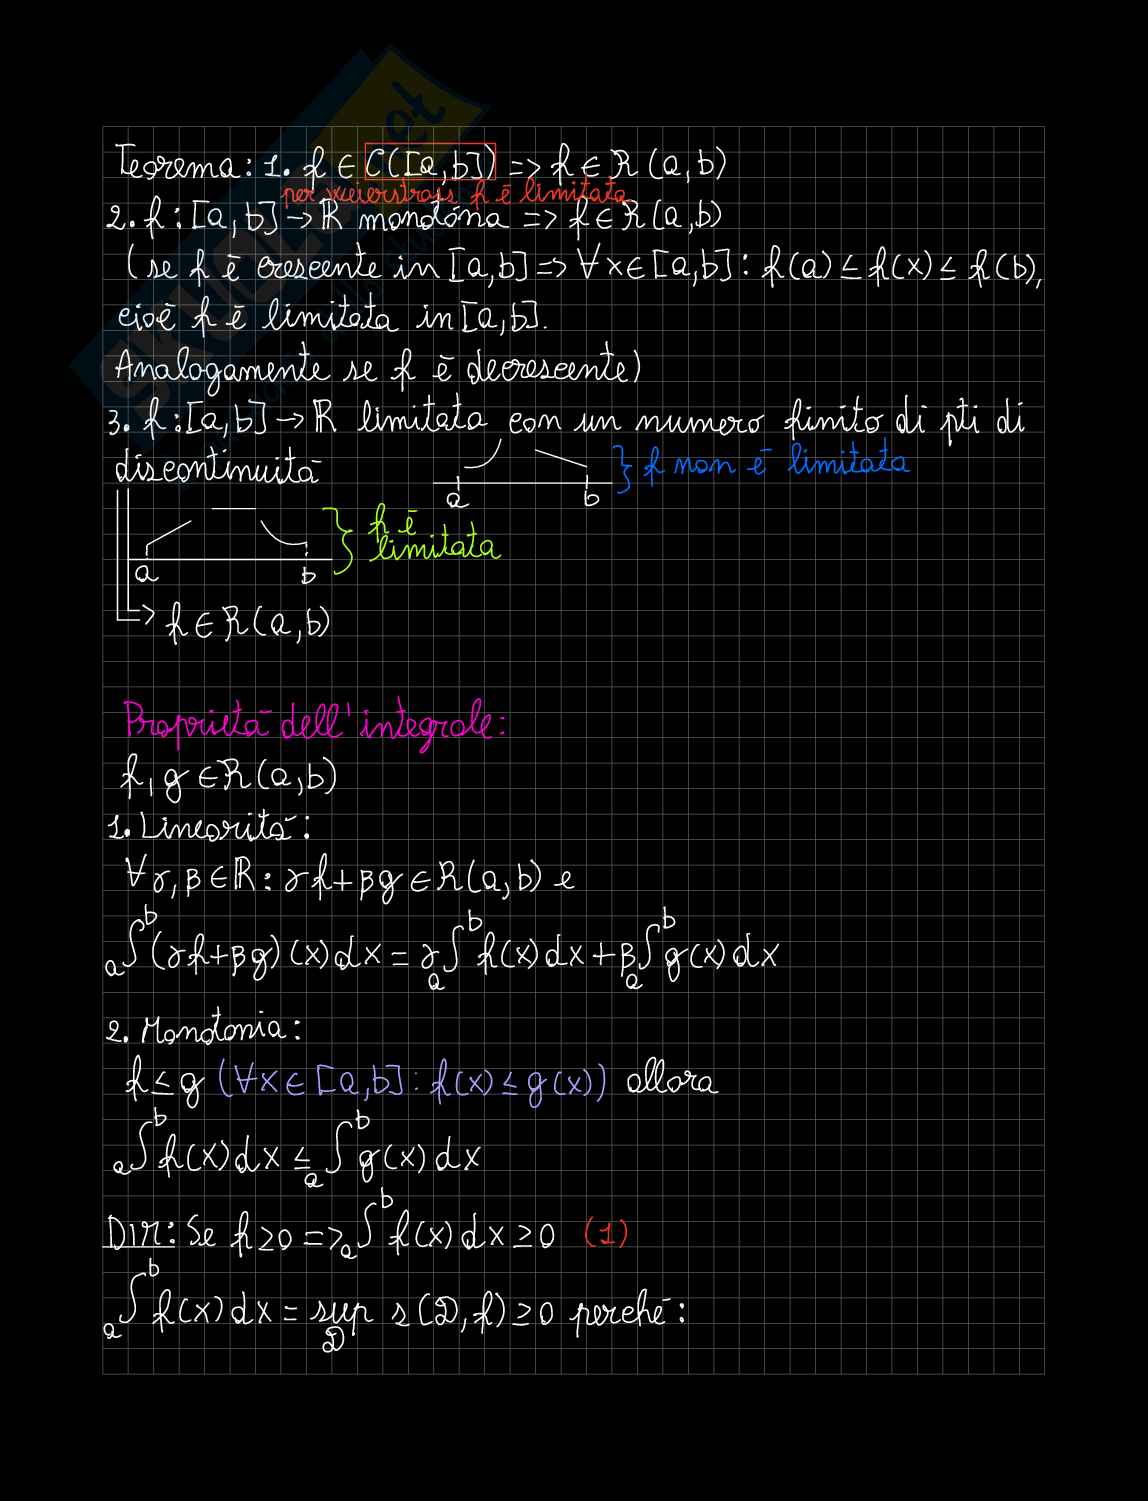 Teorema: 1. f ∈ C([a,b]) => f ∈ R(a,b)
per weierstrass f è limitata
2. f: [a,b] → ℝ monotòna => f ∈ R(a,b)
(se f è crescente in [a,b] => ∀x ∈ [a,b]: f(a) ≤ f(x) ≤ f(b),
cioè f è limitata in [a,b].
Analogamente se f è decrescente)
3. f: [a,b] → ℝ limitata con un numero finito di pti di
discontinuità
a b } f non è limitata
a b } f è
limitata
f ∈ R(a,b)
Proprietà dell'integrale:
f, g ∈ R(a,b)
1. Linearità:
∀γ, β ∈ ℝ: γf+βg ∈ R(a,b) e
a∫b (γf+βg)(x)dx = γ a∫b f(x)dx + β a∫b g(x)dx
2. Monotonia:
f ≤ g (∀x ∈ [a,b]: f(x) ≤ g(x)) allora
a∫b f(x)dx ≤ a∫b g(x)dx
DIM: Se f ≥ 0 => a∫b f(x)dx ≥ 0 (1)
a∫b f(x)dx = sup s(D, f) ≥ 0 perché:
D